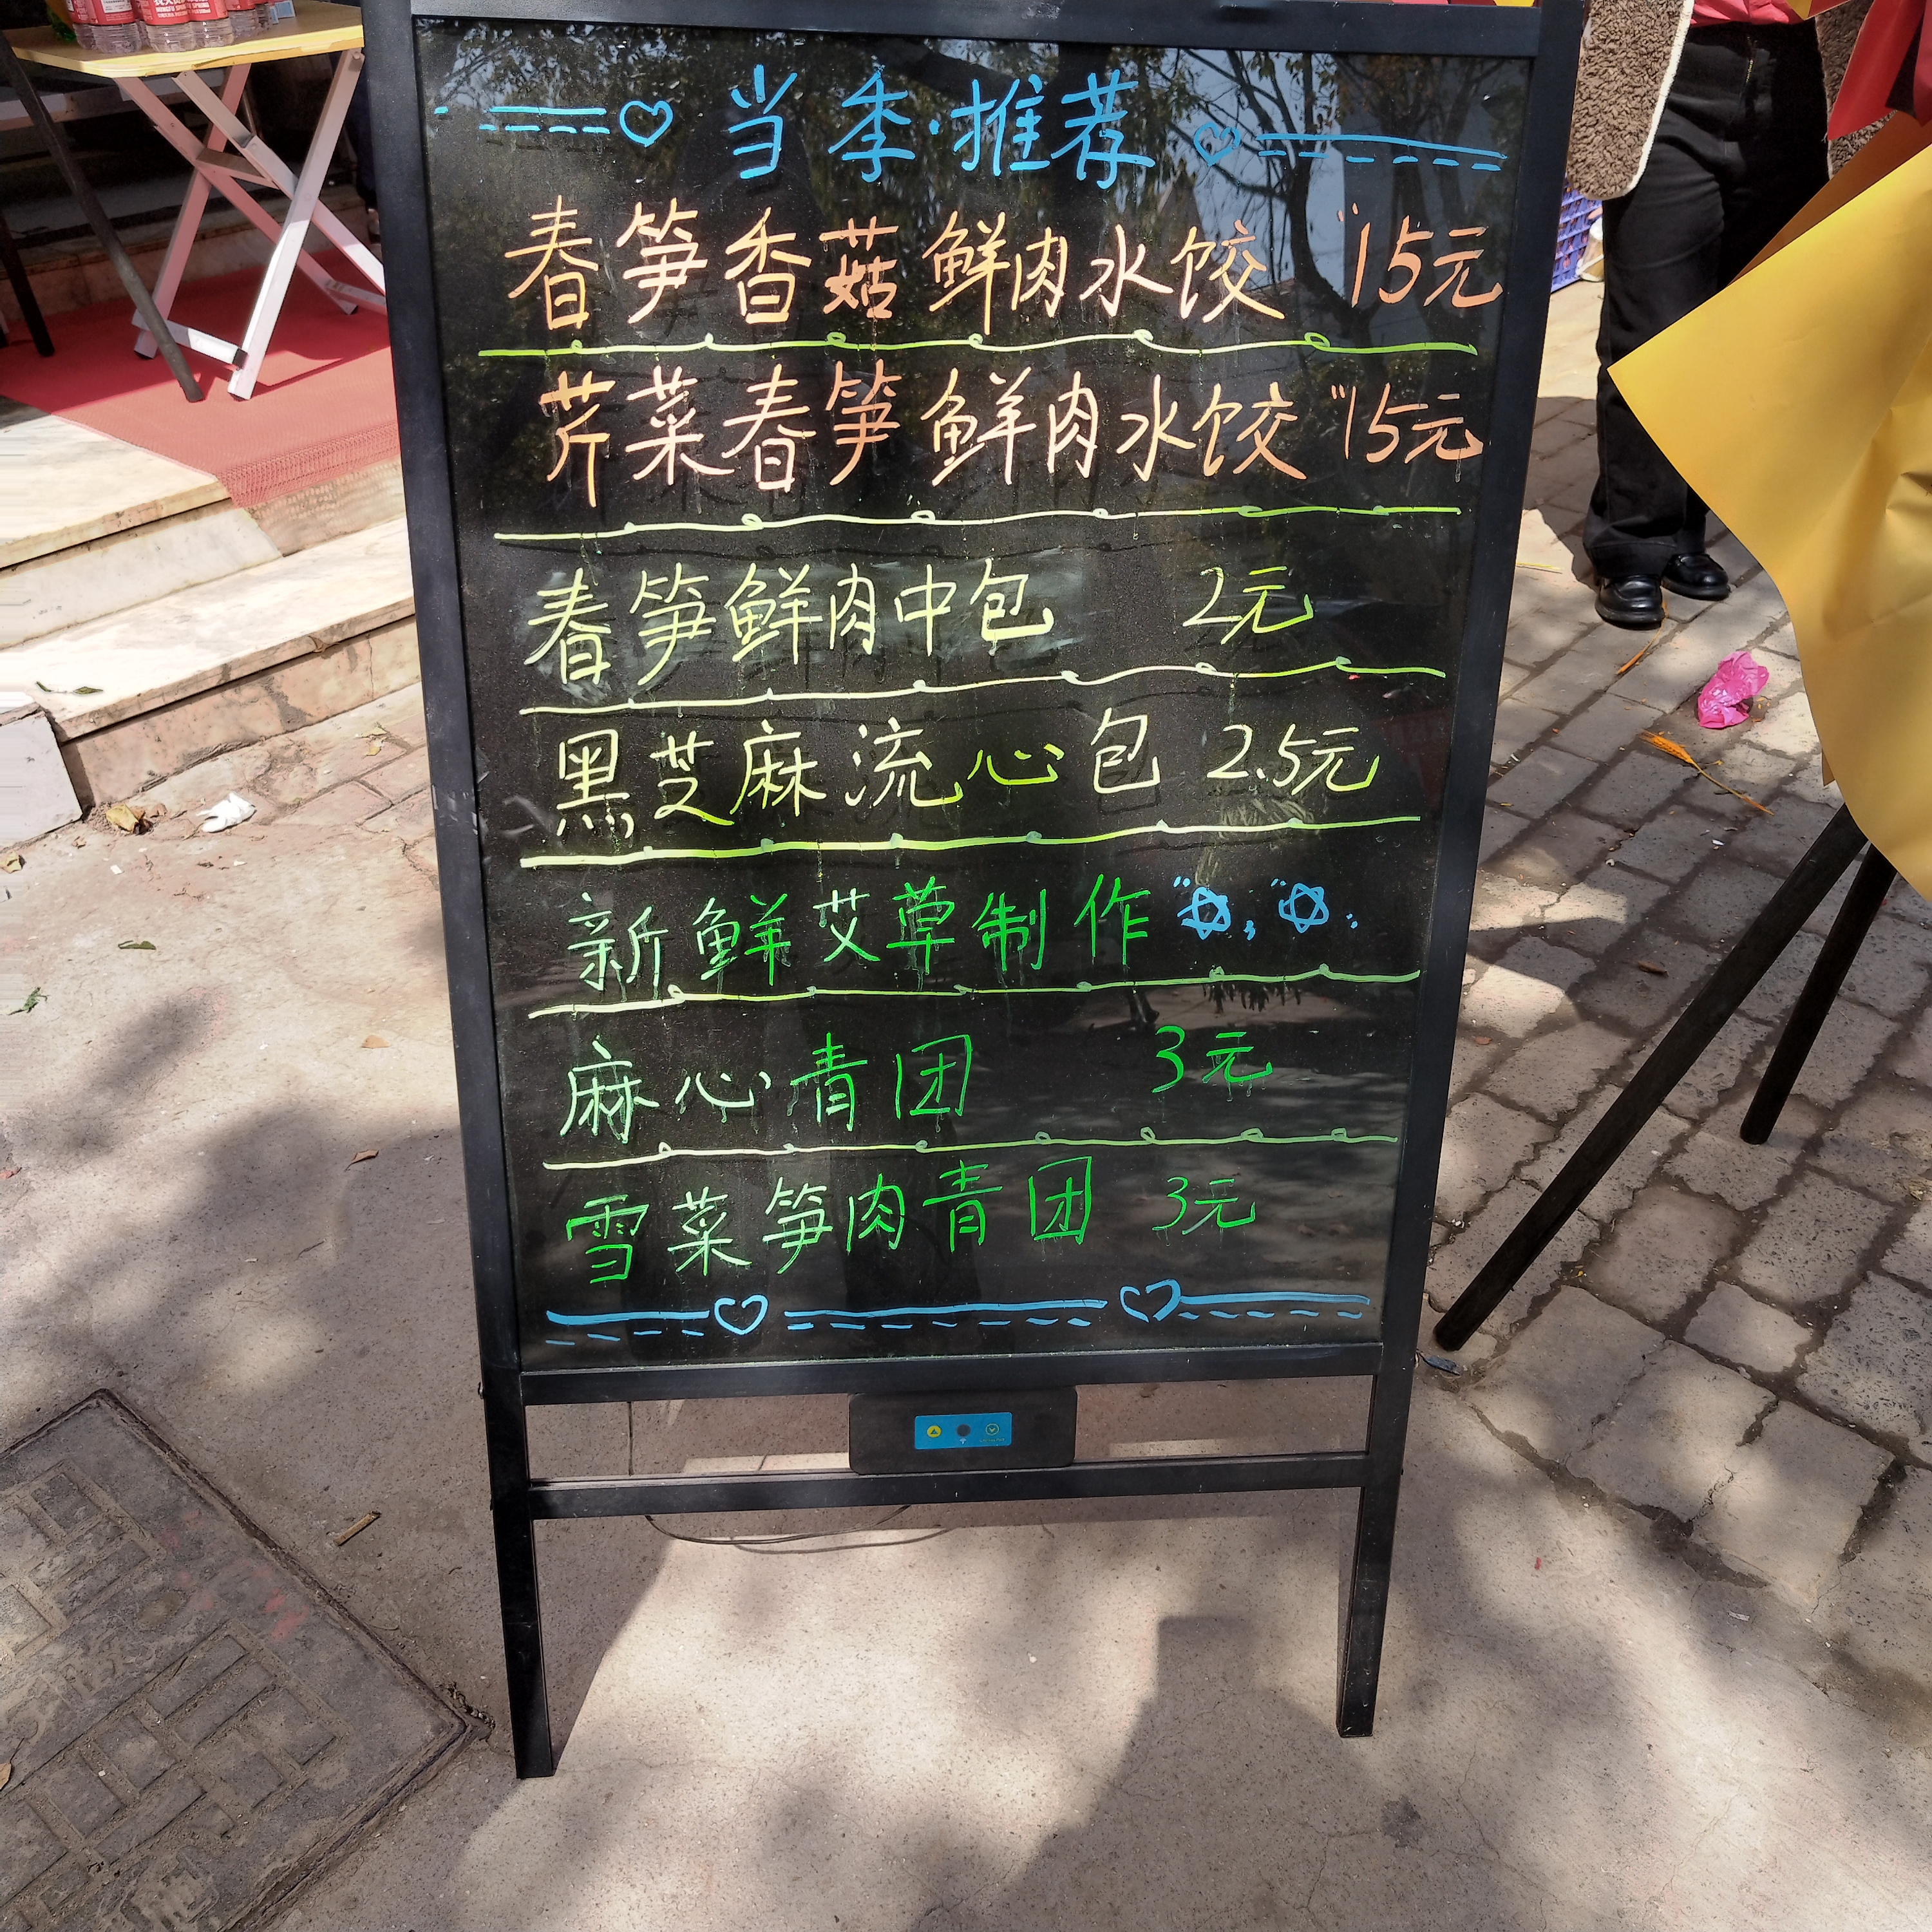 当季·推荐
春笋香菇鲜肉水饺 "15元
芹菜春笋鲜肉水饺 "15元
春笋鲜肉中包 2元
黑芝麻流心包 2.5元
新鲜艾草制作
麻心青团 3元
雪菜笋肉青团 3元